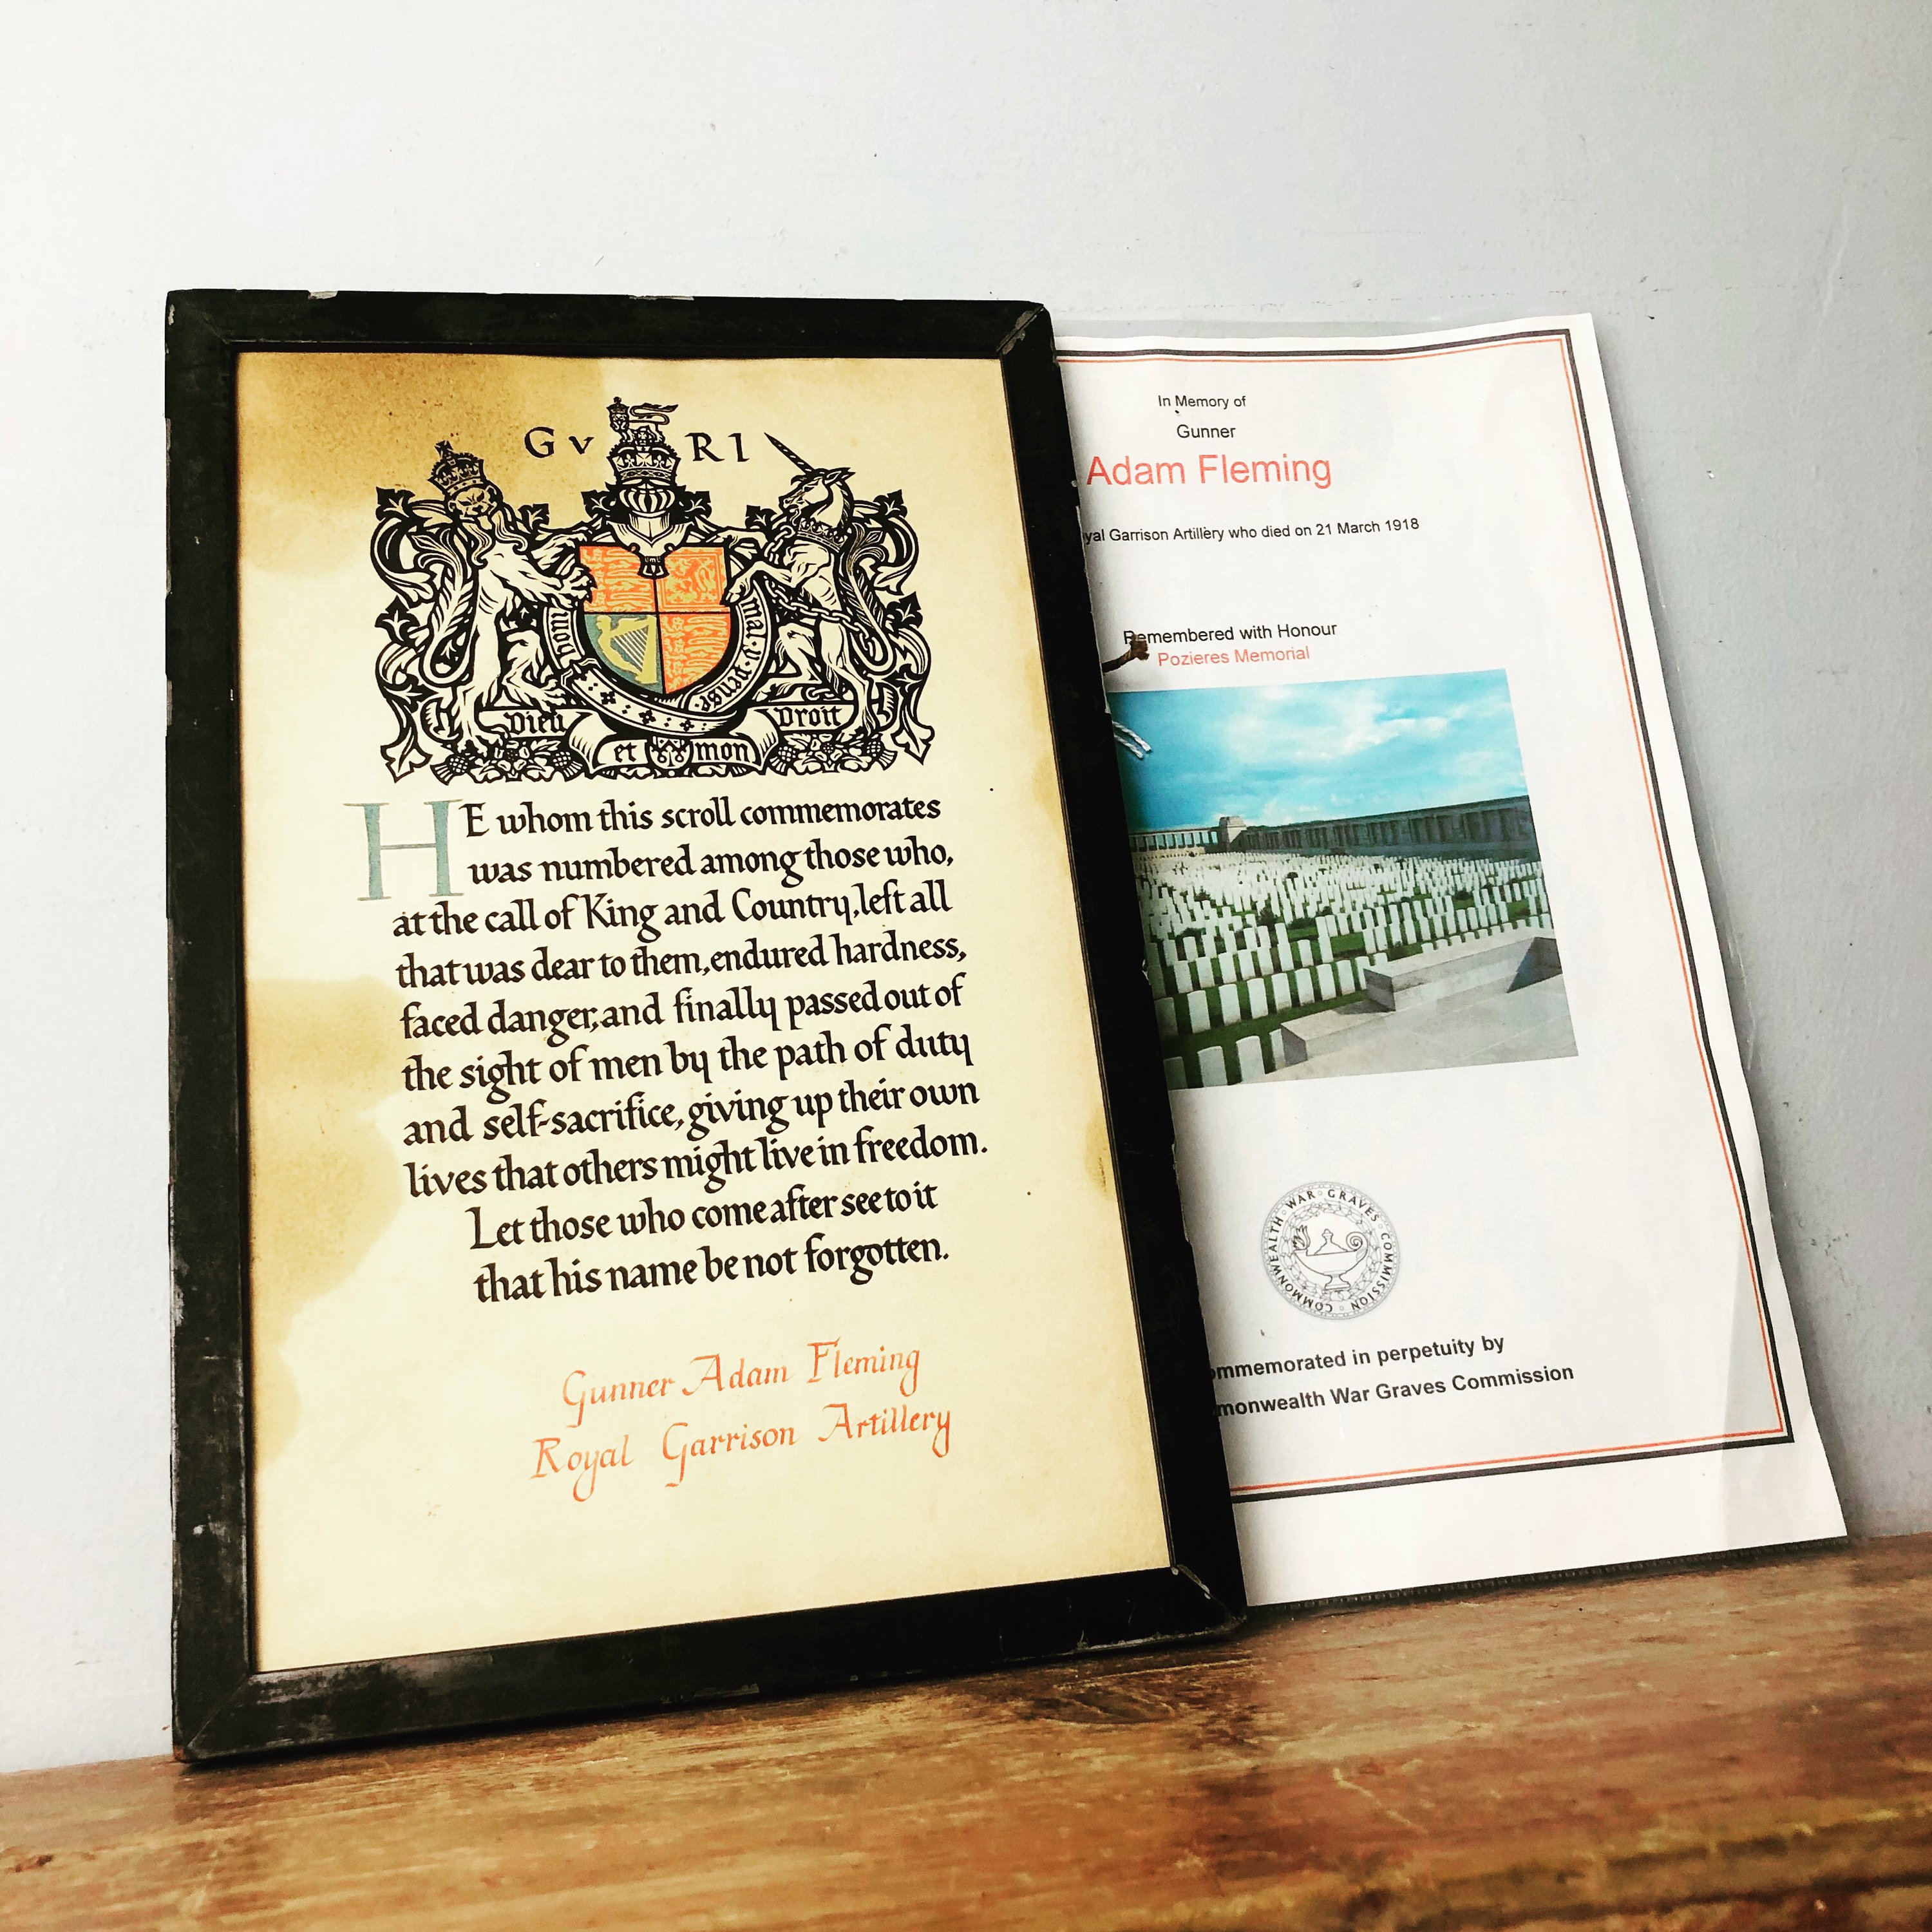 GV RI
mal·y·pense
Dieu et mon Droit
HE whom this scroll commemorates
was numbered among those who,
at the call of King and Country, left all
that was dear to them, endured hardness,
faced danger, and finally passed out of
the sight of men by the path of duty
and self-sacrifice, giving up their own
lives that others might live in freedom.
Let those who come after see to it
that his name be not forgotten.
Gunner Adam Fleming
Royal Garrison Artillery
In Memory of
Gunner
Adam Fleming
yal Garrison Artillery who died on 21 March 1918
Remembered with Honour
Pozieres Memorial
COMMONWEALTH · WAR · GRAVES · COMMISSION
ommemorated in perpetuity by
monwealth War Graves Commission